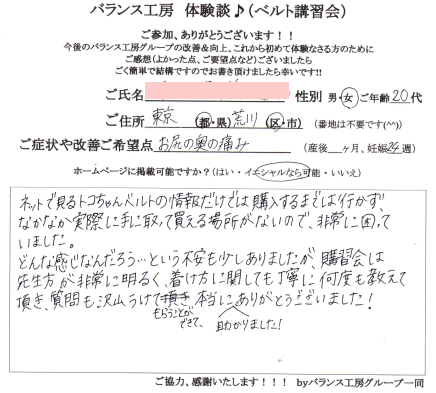 バランス工房 体験談♪(ベルト講習会)
ご参加、ありがとうございます!!
今後のバランス工房グループの改善&向上、これから初めて体験なさる方のために
ご感想(よかった点、ご要望点など)ございましたら
ごく簡単で結構ですのでお書き頂けましたら幸いです!!
ご氏名 性別 男・女 ご年齢20代
ご住所 東京 都・県) 荒川 (区・市) (番地は不要です(^^))
ご症状や改善ご希望点 お尻の奥の痛み (産後 ヶ月、妊娠24週)
ホームページに掲載可能ですか?(はい・イニシャルなら可能・いいえ)
ネットで見るトコちゃんベルトの情報だけでは購入するまでは行かず、
なかなか実際に手に取って買える場所がないので、非常に困って
いました。
どんな感じなんだろう…という不安も少しありましたが、講習会は
先生方が非常に明るく、着け方に関しても丁寧に何度も教えて
頂き、質問も沢山うけて頂き 本当にありがとうございました!
もらうことができて、助かりました!
ご協力、感謝いたします!!! byバランス工房グループ一同